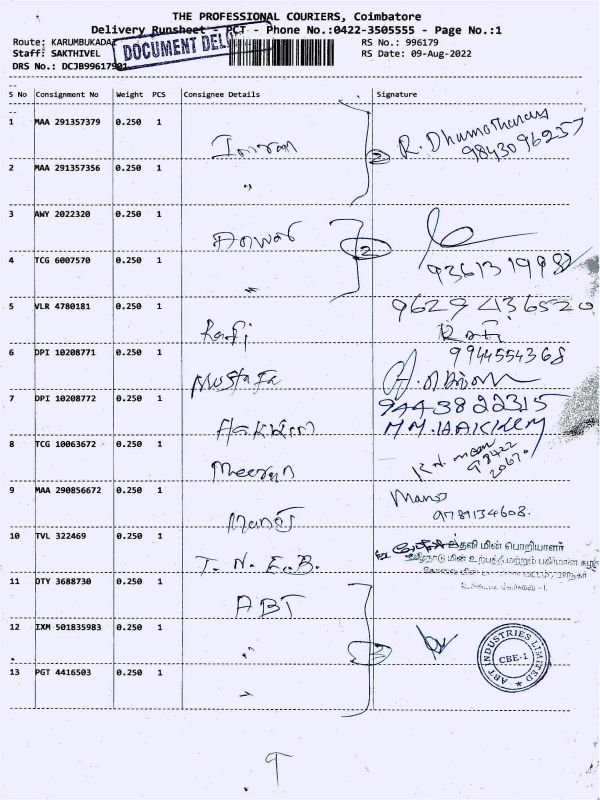 THE PROFESSIONAL COURIERS, Coimbatore
Delivery Runsheet - PCT - Phone No.:0422-3505555 - Page No.:1
Route: KARUMBUKADA
RS No.: 996179
Staff: SAKTHIVEL
DOCUMENT DEL
RS Date: 09-Aug-2022
DRS No.: DCJB99617901
S No Consignment No Weight PCS Consignee Details Signature
1 MAA 291357379 0.250 1 Imran R. Dhamotharan
9843096257
2 MAA 291357356 0.250 1 "
3 AWY 2022320 0.250 1 Anwar 2
4 TCG 6007570 0.250 1 "
5 VLR 4780181 0.250 1 Rafi 9629436520
Rafi
6 DPI 10208771 0.250 1 Mustafa 9944554368
7 DPI 10208772 0.250 1 Hakkim 9443822315
M.M.HAKKIM
8 TCG 10063672 0.250 1 Meeran
9 MAA 290856672 0.250 1 Manoj Mano
9789134608.
10 TVL 322469 0.250 1 T.N.E.B. உதவி மின் பொறியாளர்
11 OTY 3688730 0.250 1 ABT
12 IXM 501835983 0.250 1 " 3
ABT INDUSTRIES LIMITED
CBE-1
13 PGT 4416503 0.250 1 "
9